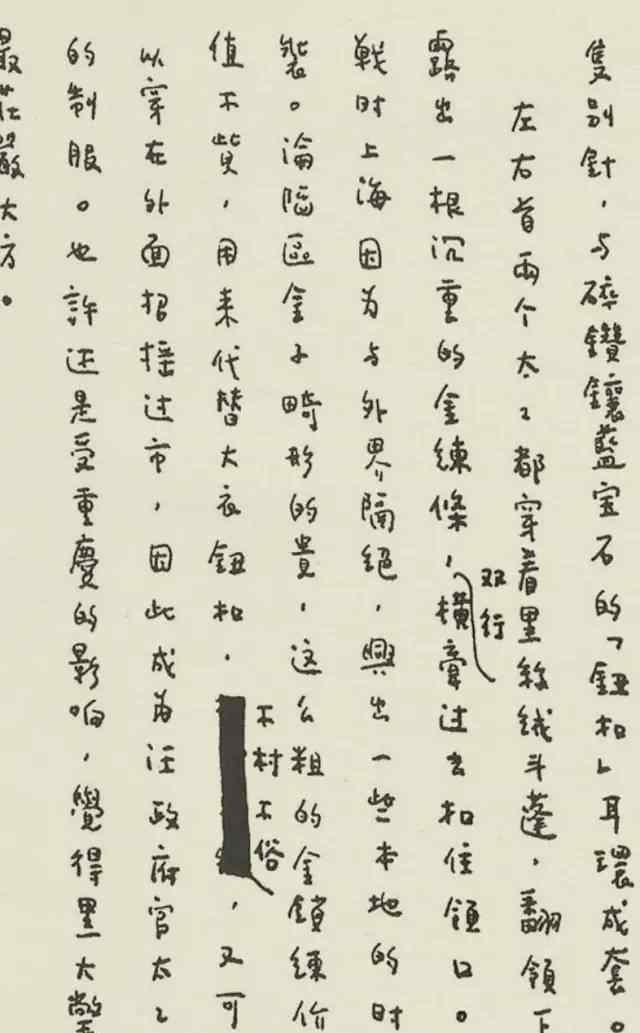 隻别針，与碎鑽鑲藍宝石的「鈕扣」耳環成套。
左右首兩个太〻都穿着黑絲絨斗蓬，翻領下
露出一根沉重的金練條，双行橫牽过去扣住領口。
戰时上海因为与外界隔絕，興出一些本地的时
裝。淪陷區金子畸形的貴，这么粗的金鎖練价
值不貲，用来代替大衣鈕扣，不村不俗，又可
以穿在外面招搖过市，因此成为汪政府官太〻
的制服。也許还是受重慶的影响，覺得黑大氅
最庄嚴大方。